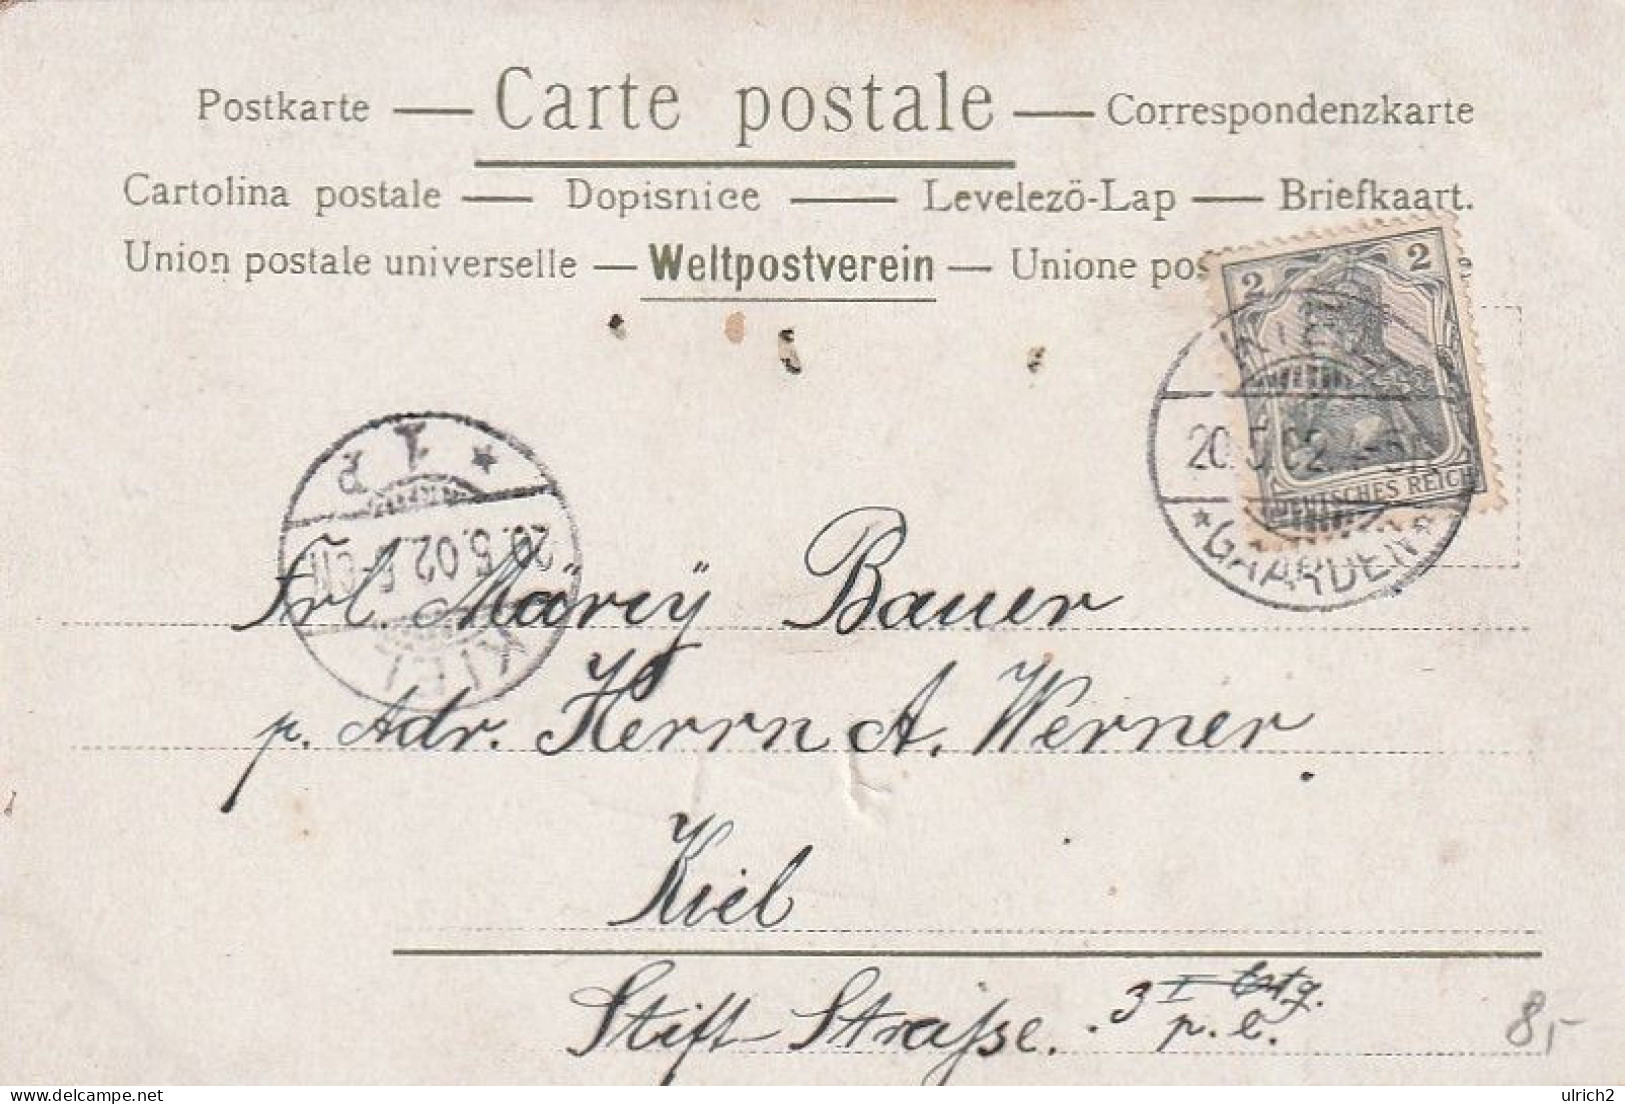 Postkarte — Carte postale — Correspondenzkarte
Cartolina postale — Dopisnice — Levelezö-Lap — Briefkaart.
Union postale universelle — Weltpostverein — Unione pos e
2 2
DEUTSCHES REICH
KIEL
20.5.02
* GAARDEN *
KIEL
20.5.02
*
Frl. Märcÿ Bauer
p. Adr. Herrn A. Werner
Kiel
Stift Straße. 3 I Etg.
p. l.
8,-
delcampe.net
ulrich2